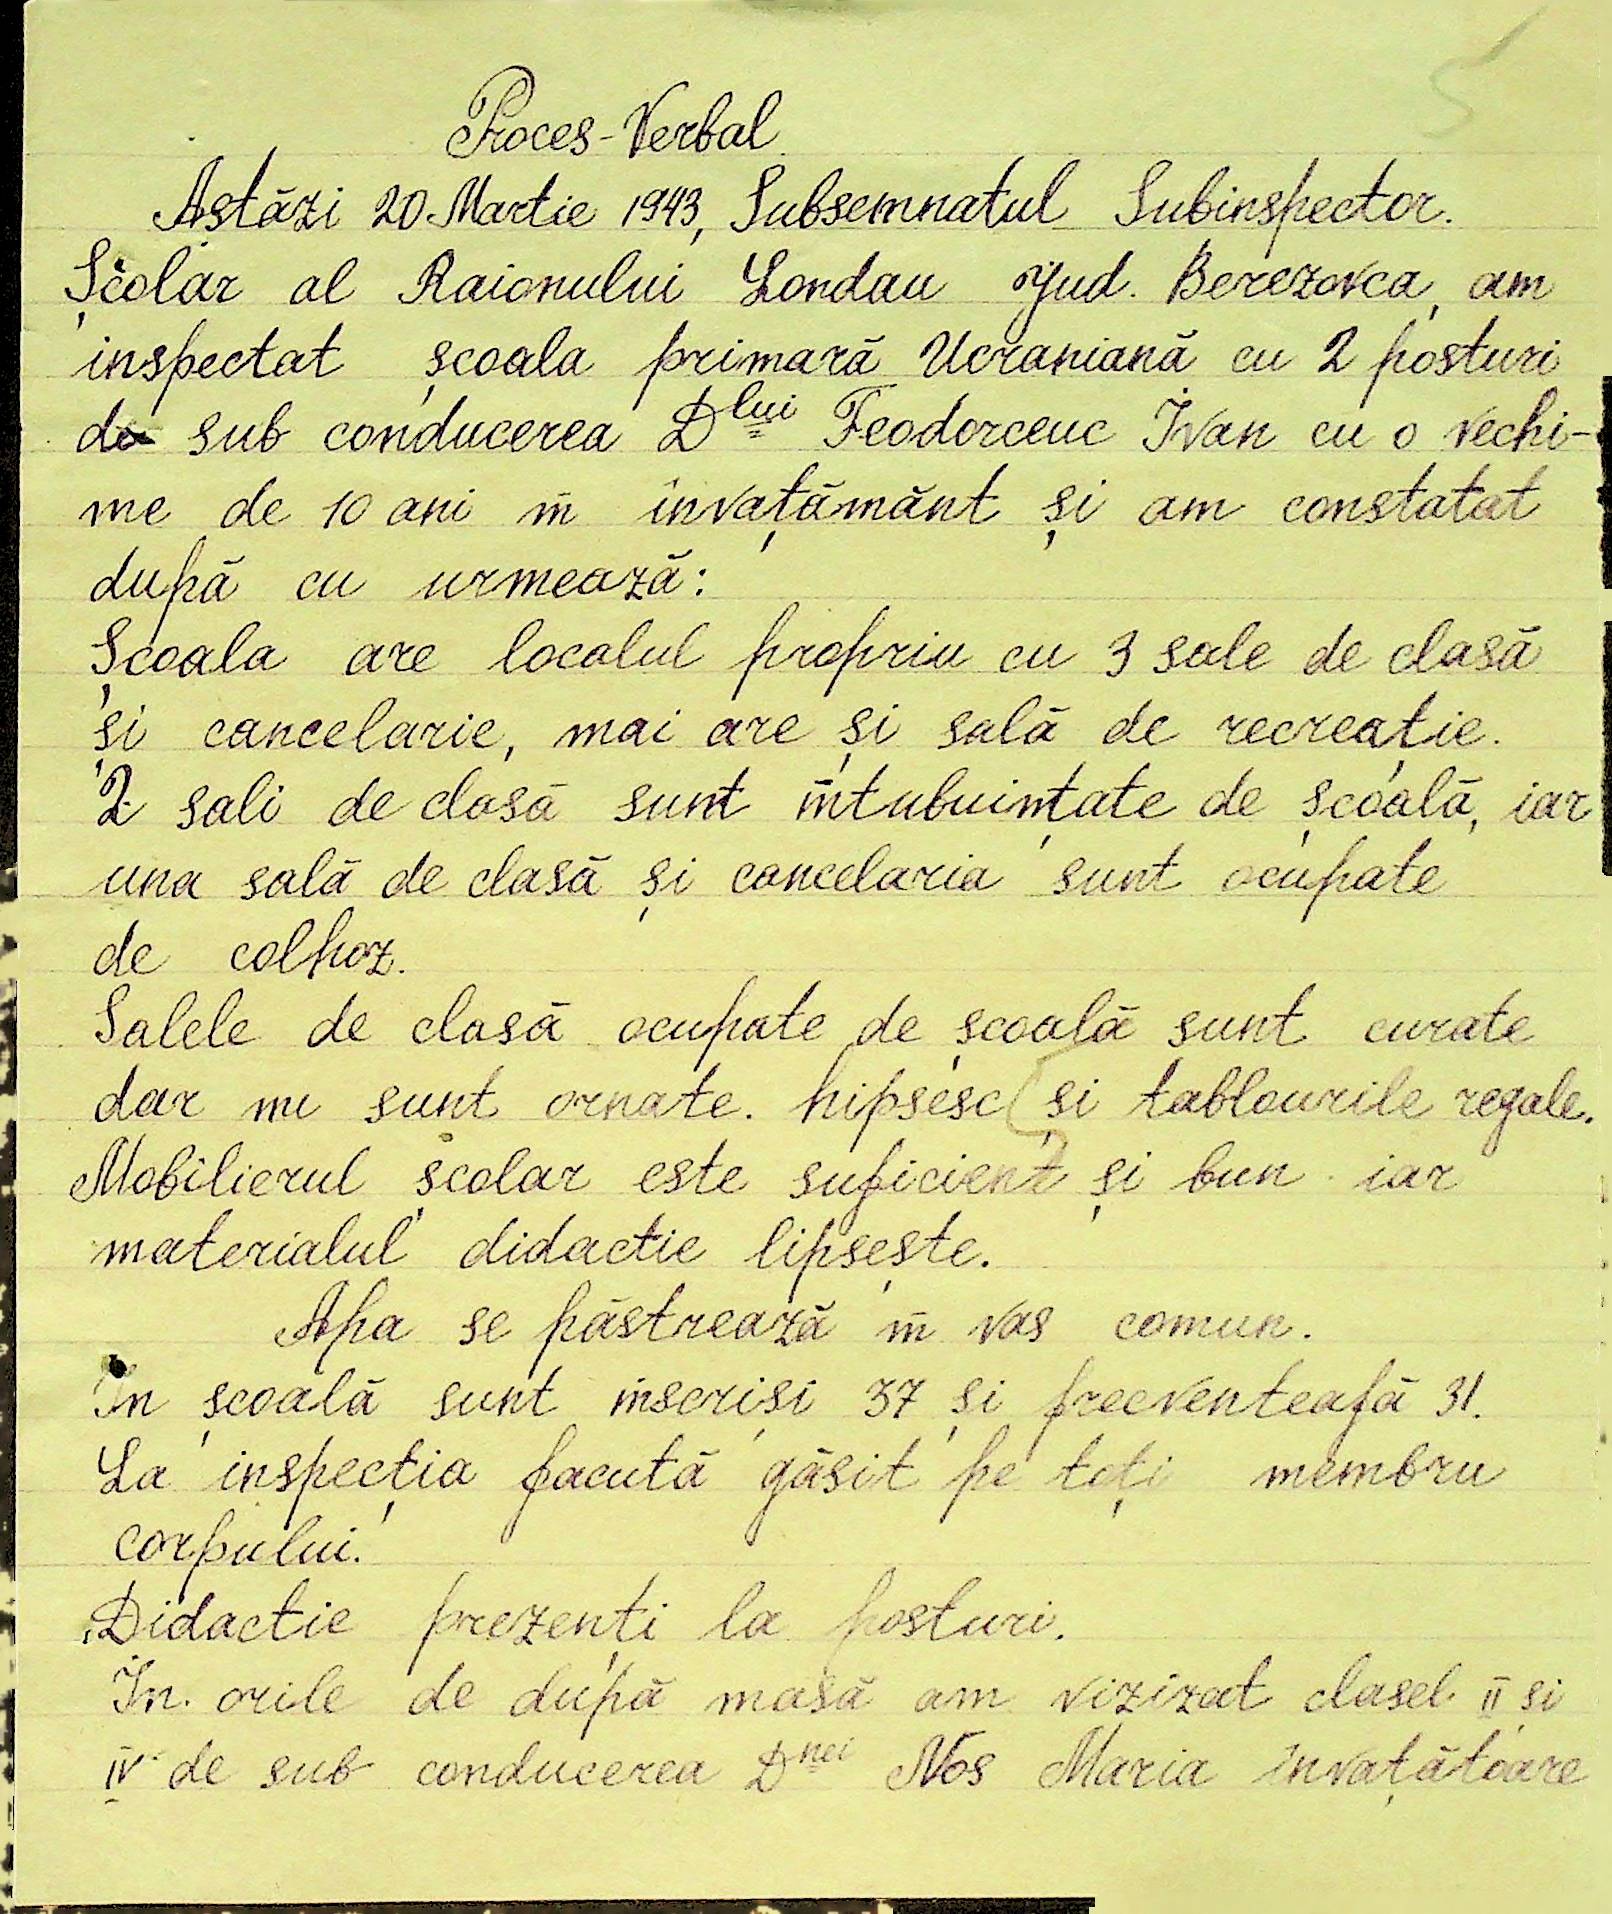 Proces-Verbal
Astăzi 20 Martie 1943, Subsemnatul Subinspector.
Școlar al Raionului Londau Jud. Berezovca, am
inspectat școala primară Ucraniană cu 2 posturi
de sub conducerea Dlui Feodorceuc Ivan cu o vechi-
me de 10 ani în învațămănt și am constatat
după cu urmează:
Școala are localul propriu cu 3 sale de clasă
și cancelarie, mai are și sală de recreație.
2 sali de clasă sunt întubuințate de școală, iar
una sală de clasă și cancelaria sunt ocupate
de colhoz.
Salele de clasă ocupate de școală sunt curate
dar nu sunt ornate. hipsesc și tablourile regale.
Mobilierul școlar este suficient și bun iar
materialul didactie lipsește.
Apa se păstrează în vas comun.
In școală sunt inscriși 37 și frecventeafă 31.
La inspecția facută găsit pe toți membru
corpului.
Didactie prezenți la posturi.
In. orile de după masă am vizizat clasel II si
IV de sub conducerea Dnei Nos Maria invațătoare